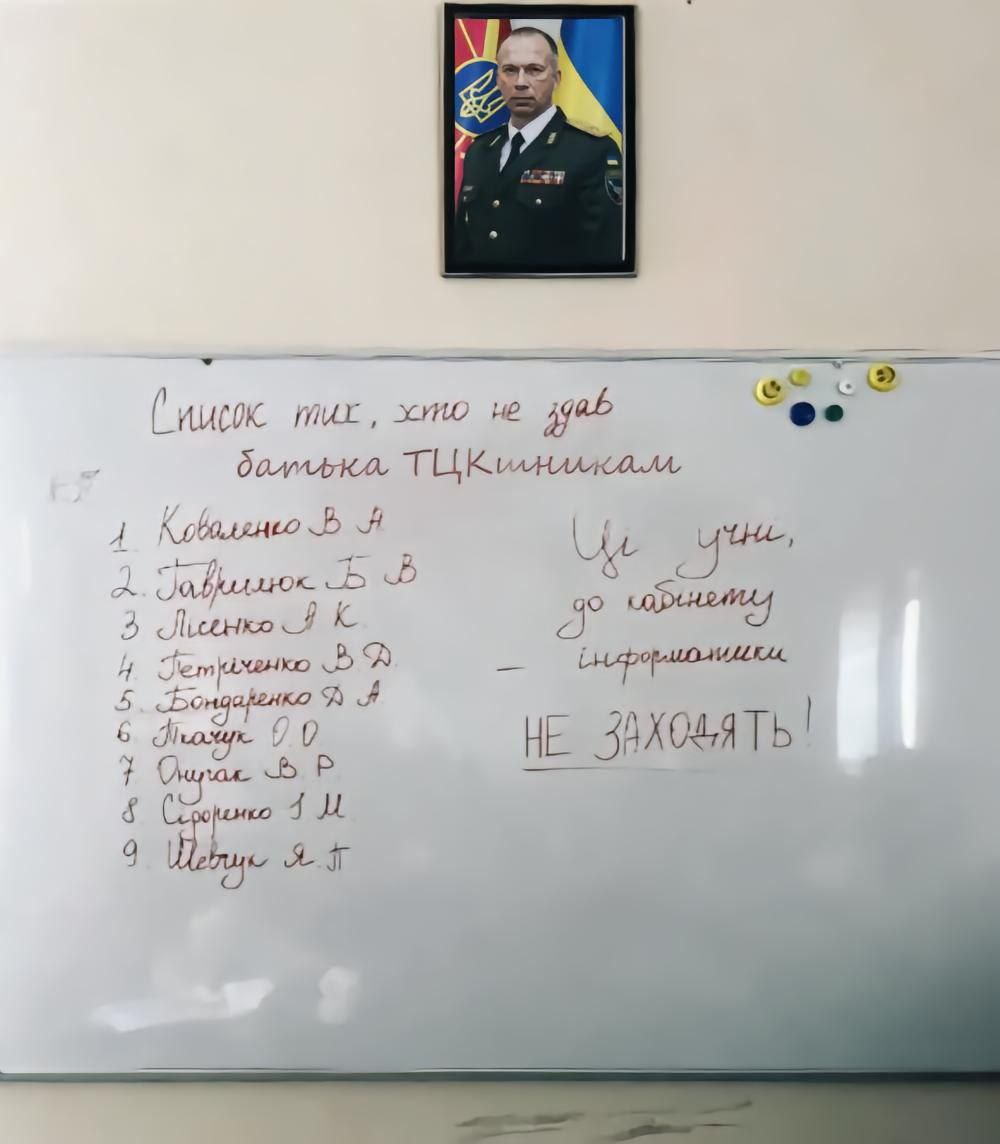 Список тих, хто не здав
батька ТЦКшникам
1. Коваленко В А
2. Гаврилюк Б В
3 Лісенко А К
4. Петріченко В Д
5. Бондаренко Д А
6 Ткачук О.О
7 Онучак В Р
8 Сідоренко І М
9 Шевчук Я.П
Ці учні,
до кабінету
– інформатики
НЕ ЗАХОДЯТЬ!